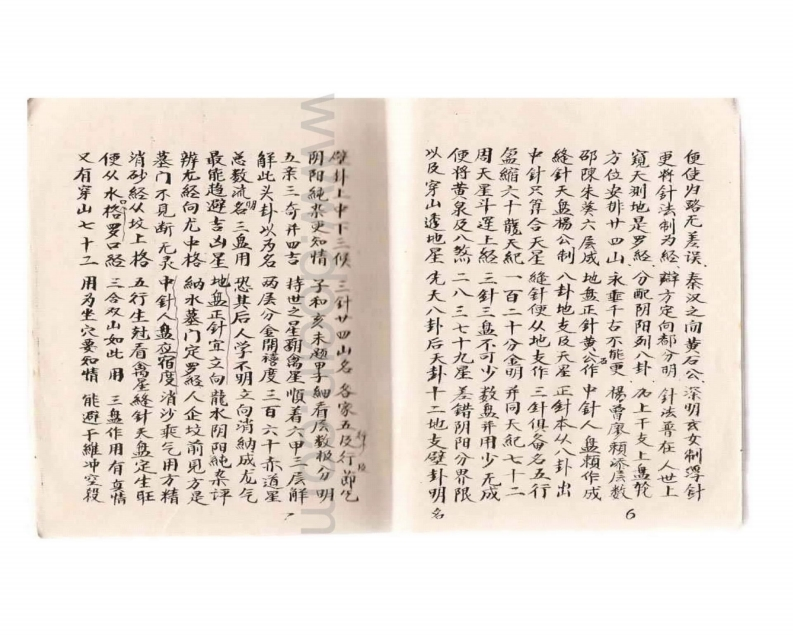 便使归路无差误 秦汉之间黄石公 深明玄女制浮针
更将针法制为经 辩方定向都分明 针法普在人世上
窥天测地是罗经 分配阴阳列八卦 加上干支上盘轮
方位安排廿四山 永垂千古不能更 杨曾廖赖添层数
邵陈朱蔡六层成 地盘正针黄公作 中针人盘赖作成
缝针天盘杨公制 八卦地支及天星 正针本从八卦出
中针只算合天星 缝针便从地支作 三针俱备名五行
盈缩六十龍天纪 一百二十分金明 并同天纪七十二
周天星斗逐上经 三针三盘不可少 数盘并用少无成
便将黄泉及八煞 二八三七十九星 差错阴阳分界限
以及穿山透地星 先天八卦后天卦 十二地支壁卦明
6
名
壁卦上中下三候 三针廿四山名 各家五及行 節气
阴阳純杂更知情 子和亥未题里 细看层数极分明
五亲三奇并四吉 持世之星翻禽星 順着六甲三层解
解此头卦以为名 两层分金開禧度 三百六十赤道星
总数流名三盘用 恐其后人学不明 立向消納成龙气
最能趋避吉凶星 地盘正针宜立向 龍水阴阳純杂评
辨龙經向龙中格 納水墓门定罗經 人企坟前見方是
墓门不見断无灵 中針人盘应宿度 消沙乘气用方精
消砂經从坟上格 五行生尅看禽星 縫針天盘定生旺
便从水口格罗經 三合双山如此用 三盘作用有真情
又有穿山七十二 用为坐穴要知情 能避干維冲空殺
7
www.
.com